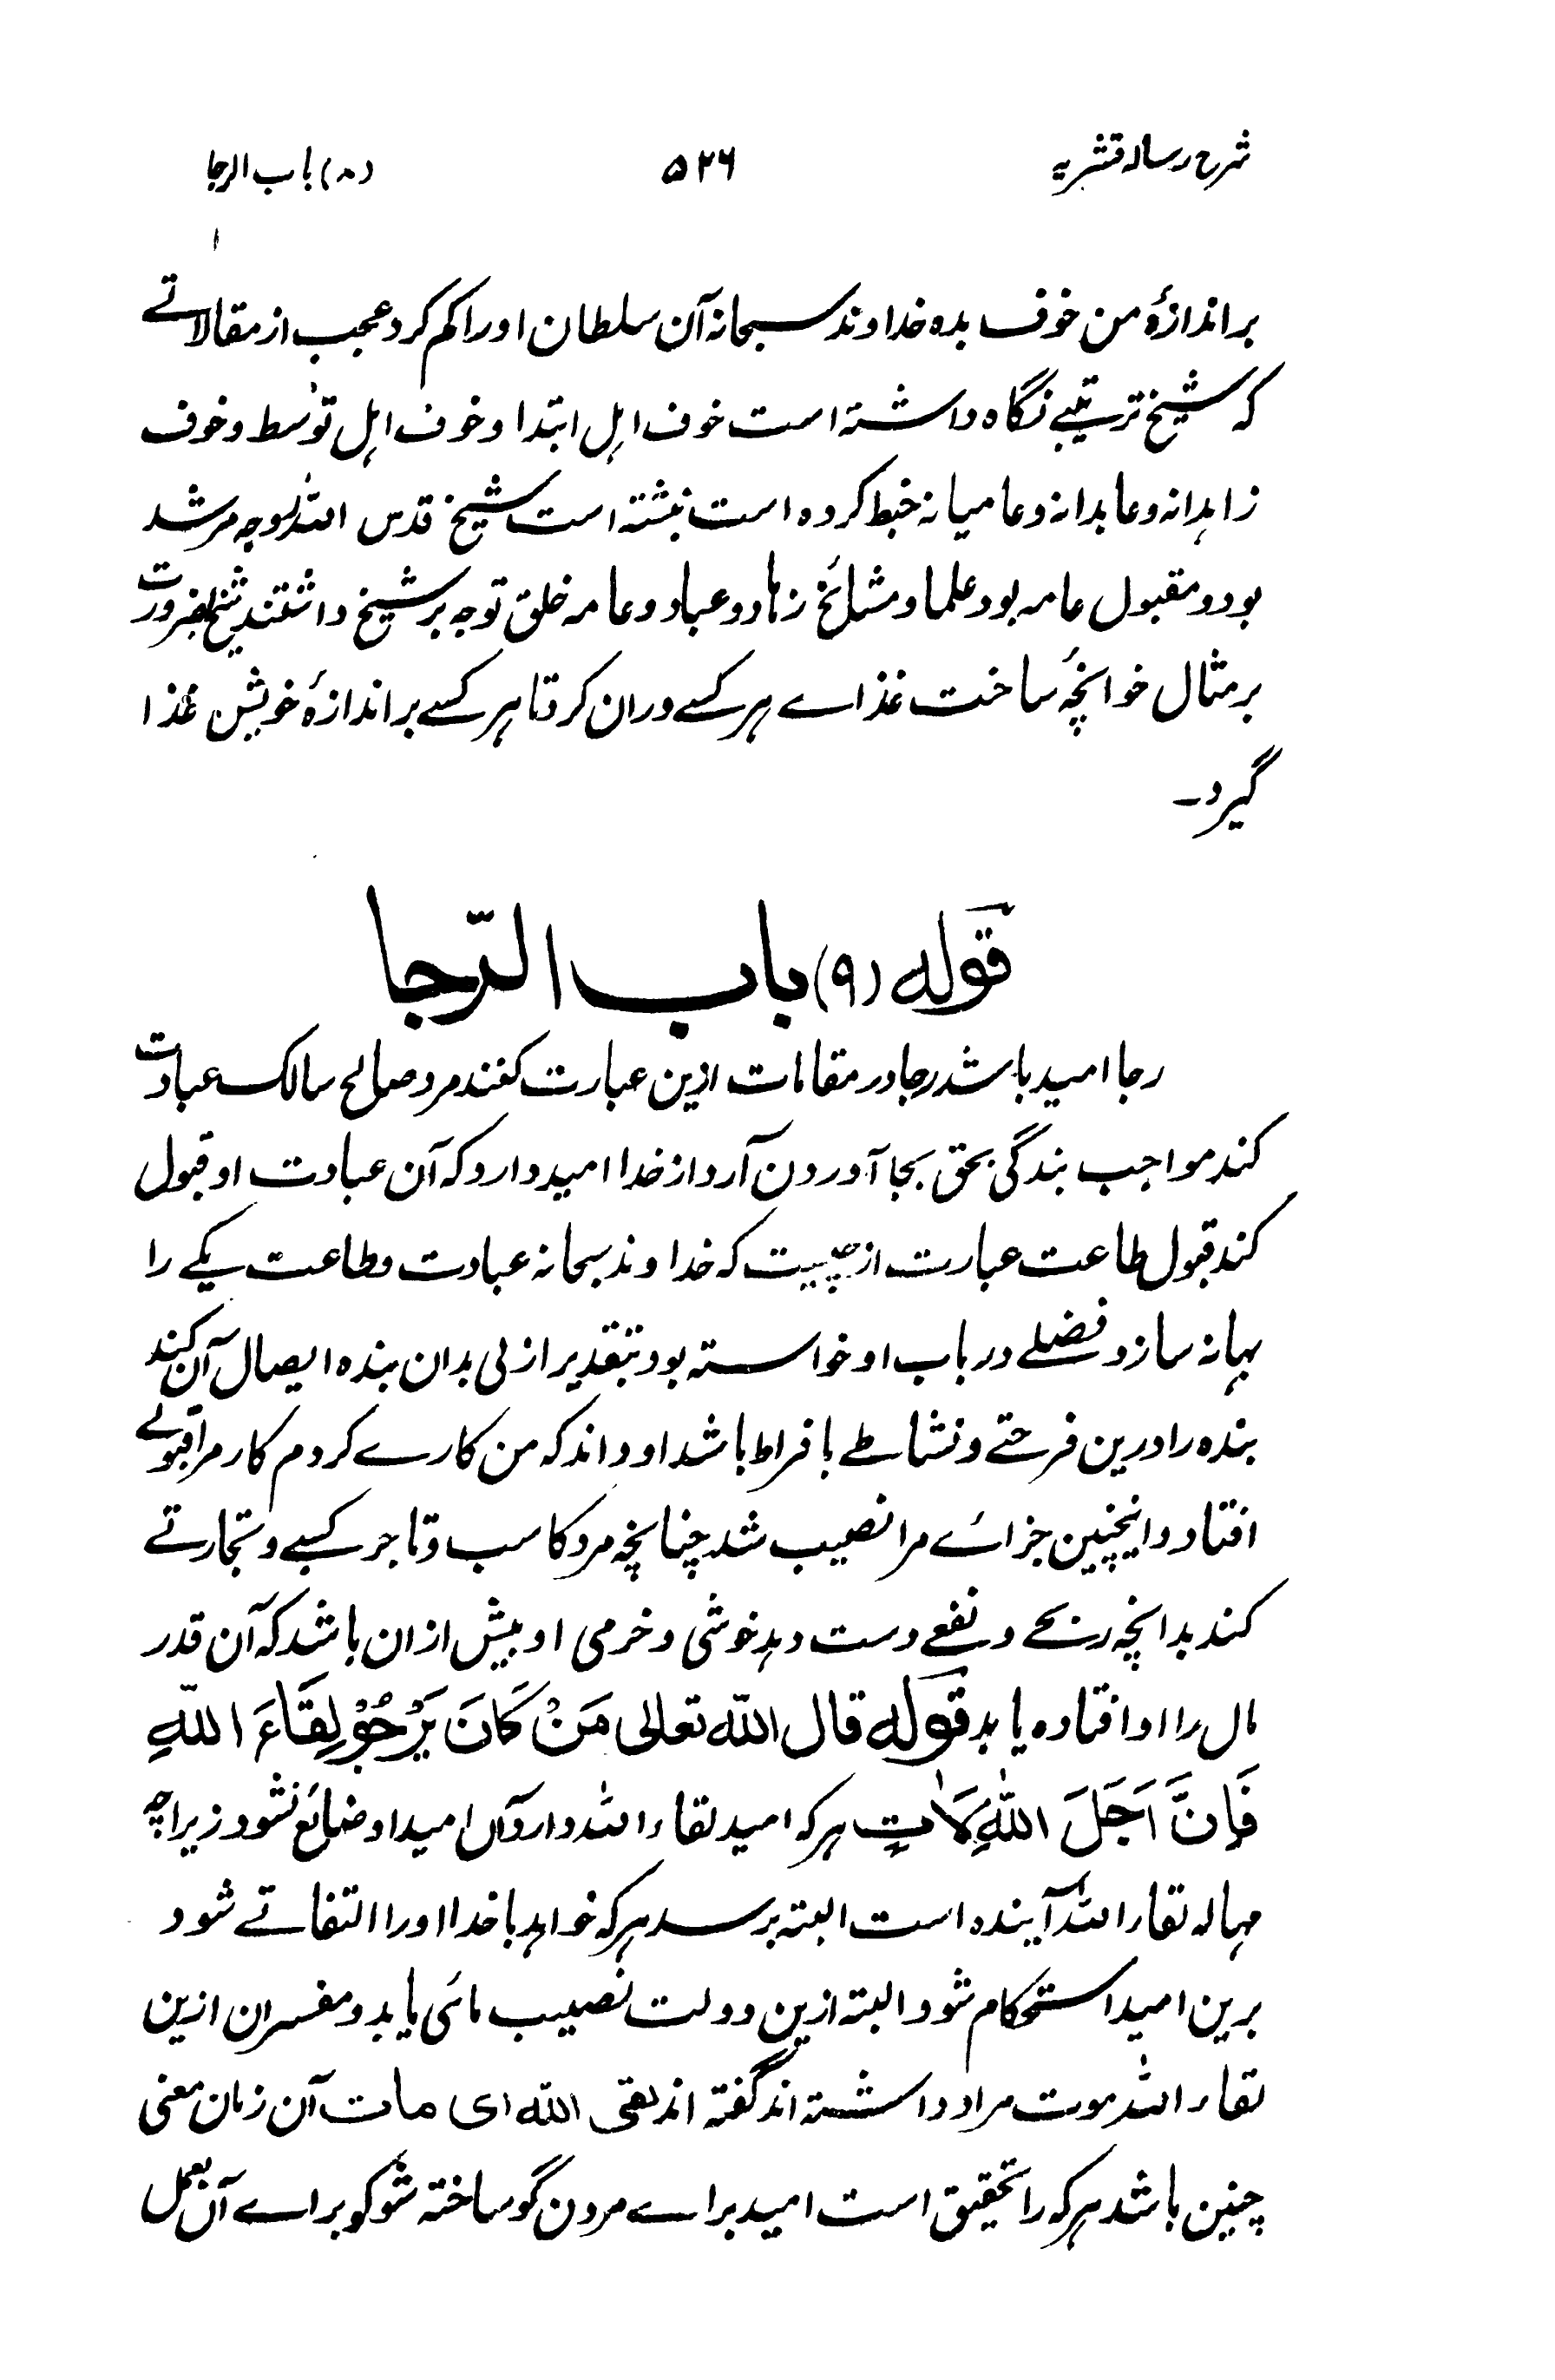 شرح رساله قشریه ۵۲۶ (۸) باب الرجا
بر اندازهٔ من خوف بده خداوند سبحانه آن سلطان اورا کم کرد عجب از مقالاتے
که شیخ ترتیبے نگاه داشته است خوف اهل ابتدا و خوف اهل توسط و خوف
زاهدانه و عابدانه و عامیانه خبط کرده است نبشته است شیخ قدس الله لوجه مرشد
بود و مقبول عامه بود علما و مشائخ زهاد و عباد و عامه خلق توجه بر شیخ داشتند شیخ بضرورت
بر مثال خوانچهٔ ساخت غذاے هر کسے دران کرد تا هر کسے بر اندازهٔ خویش غذا
گیرد۔
قوله (۹) باب الرّجا
رجا امید باشد رجا در مقامات ازین عبارت کنند مرد صالح سالک عبادت
کند مواجب بندگی بحق بجا آوردن آرد از خدا امید دارد که آن عبادت او قبول
کند قبول طاعت عبارت از چیست که خداوند سبحانه عبادت و طاعت یکے را
بهانه سازد فضلے در باب او خواسته بود بتقدیر ازلی بدان بنده ایصال آن کند
بنده را درین فرحتے و نشاطے بافراط باشد او داند که من کارے کردم کار مرا قبولے
افتاد و اینچنین جزائے مرا نصیب شد چنانچه مرد کاسب و تاجر کسبے و تجارتے
کند بدانچه ربحے و نفعے دست دهد خوشی و خرمی او بیش ازان باشد که آن قدر
مال را او افتاده یابد قوله قال الله تعالی مَنْ كَانَ يَرْجُوْ لِقَاءَ اللهِ
فَاِنَّ اَجَلَ اللهِ لَاٰتٍ هر که امید لقاء الله دارد آں امید او ضائع نشود زیراچه
مهاله لقاء الله آینده است البته برسد هر که خواهد با خدا اورا التفاتے شود
برین امید استحکام شود البته ازین دولت نصیب مائی یابد و مفسران ازین
لقاء الله موت مراد داشته اند گفته اند لقی الله ای مات آن زمان معنی
چنین باشد هر که را تحقیق است امید براے مردن گو ساخته شو گو براے آن بعمل